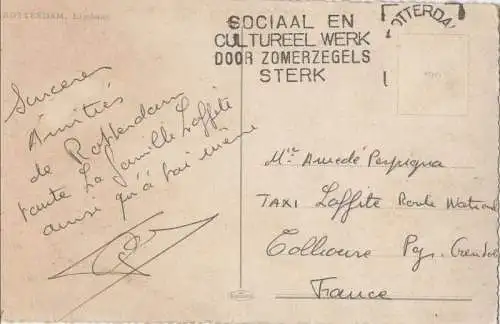 ROTTERDAM,
SOCIAAL EN
CULTUREEL WERK
DOOR ZOMERZEGELS
STERK
ROTTERDA
Sinceres
Amitiés
de Rotterdam
toute La famille Laffite
ainsi qu'à toi même
Mr Amedé Perpigna
TAXI Laffite Route National
Collioure Pyr.
France